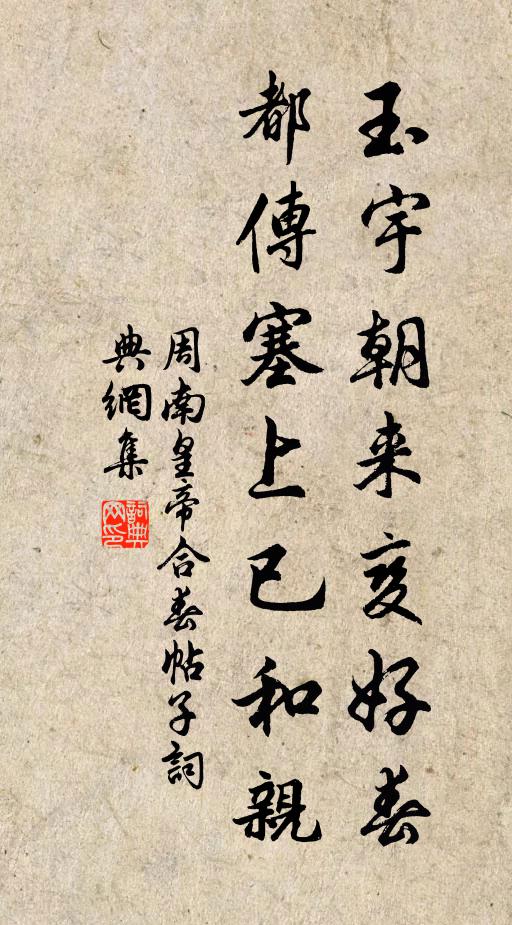 玉宇朝来变好春
都傳塞上已和親
周南皇帝合春帖子詞
典網集
詞典网印